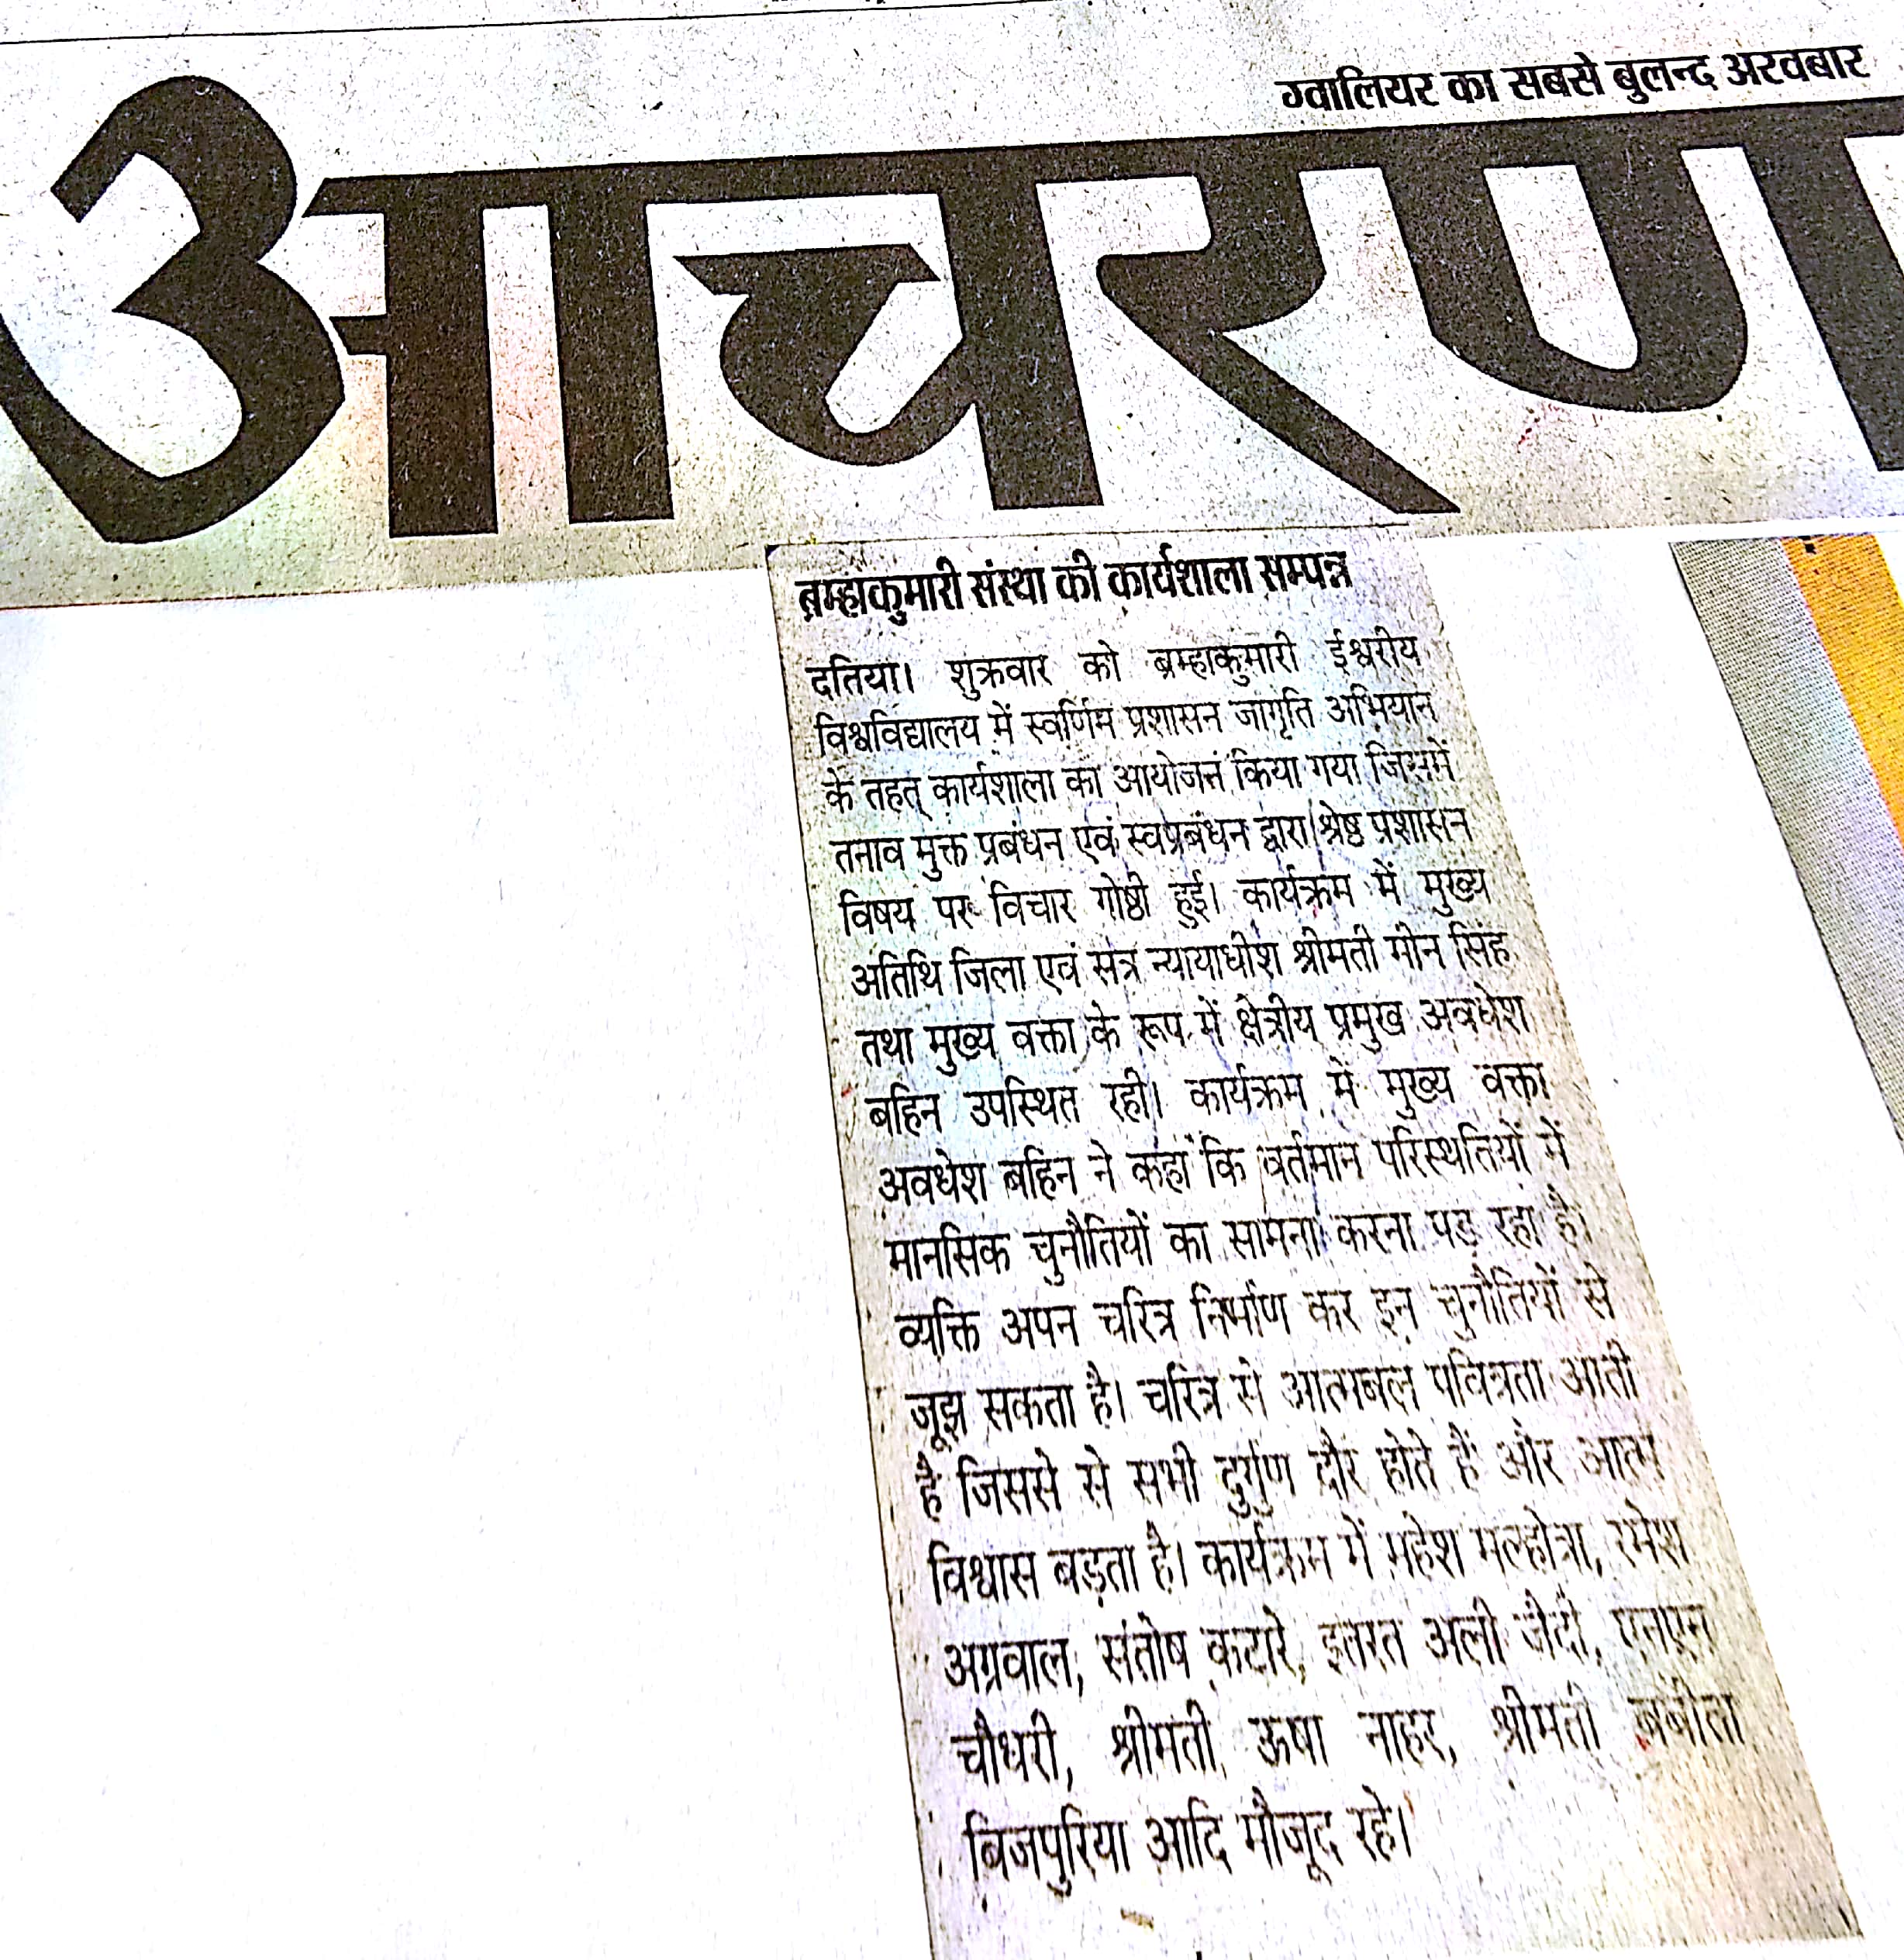 ग्वालियर का सबसे बुलन्द अखबार
आचरण
ब्रम्हाकुमारी संस्था की कार्यशाला सम्पन्न
दतिया। शुक्रवार को ब्रम्हाकुमारी ईश्वरीय
विश्वविद्यालय में स्वर्णिम प्रशासन जागृति अभियान
के तहत् कार्यशाला का आयोजन किया गया जिसमें
तनाव मुक्त प्रबंधन एवं स्वप्रबंधन द्वारा श्रेष्ठ प्रशासन
विषय पर विचार गोष्ठी हुई। कार्यक्रम में मुख्य
अतिथि जिला एवं सत्र न्यायाधीश श्रीमती मीन सिंह
तथा मुख्य वक्ता के रूप में क्षेत्रीय प्रमुख अवधेश
बहिन उपस्थित रही। कार्यक्रम में मुख्य वक्ता
अवधेश बहिन ने कहा कि वर्तमान परिस्थतियों में
मानसिक चुनौतियों का सामना करना पड़ रहा है।
व्यक्ति अपन चरित्र निर्माण कर इन चुनौतियों से
जूझ सकता है। चरित्र से आत्मबल पवित्रता आती
है जिससे से सभी दुर्गुण दौर होते हैं और आत्म
विश्वास बड़ता है। कार्यक्रम में महेश मल्होत्रा, रमेश
अग्रवाल, संतोष कटारे, इतरत अली जैदी, एनएन
चौधरी, श्रीमती ऊषा नाहर, श्रीमती बबीता
बिजपुरिया आदि मौजूद रहे।